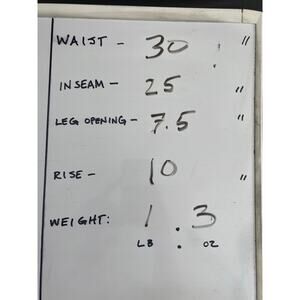 WAIST - 30 "
INSEAM - 25 "
LEG OPENING - 7.5 "
RISE - 10 "
WEIGHT: 1 . 3
LB . OZ